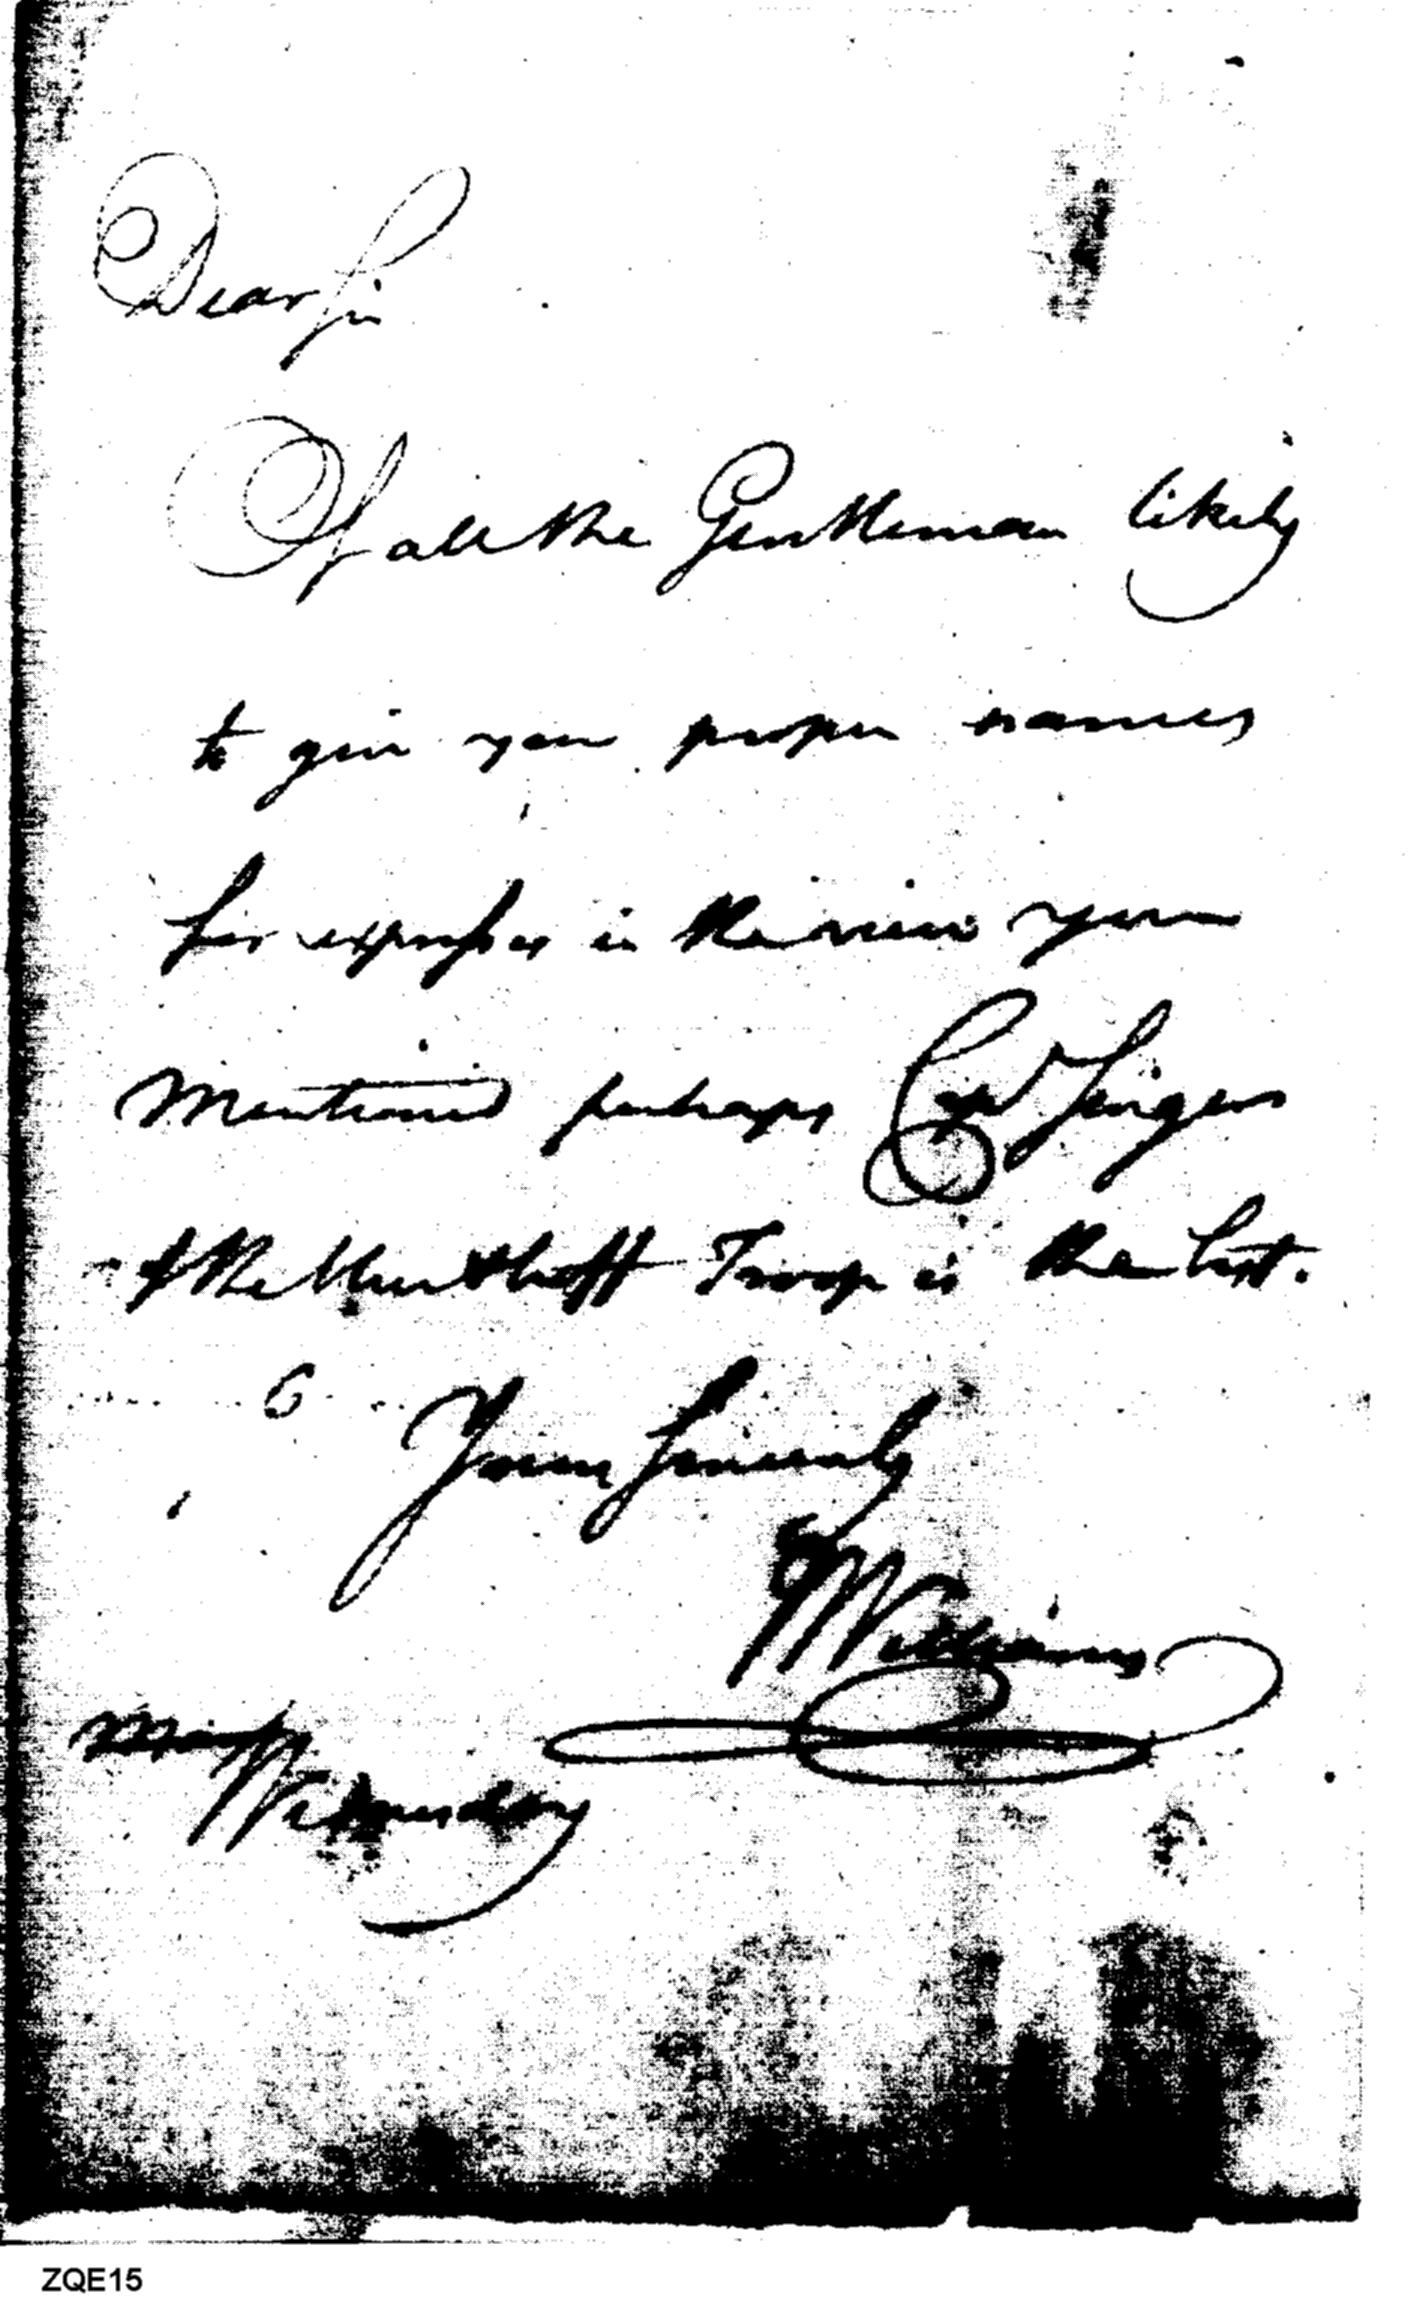 Dear Sir
Of all the Gentlemen likely
to give you proper names
for expresses in the view you
Mentioned perhaps Capt Singer
of the Troop is the best.
6
Yours Sincerely
Williams
Wednesday
ZQE15